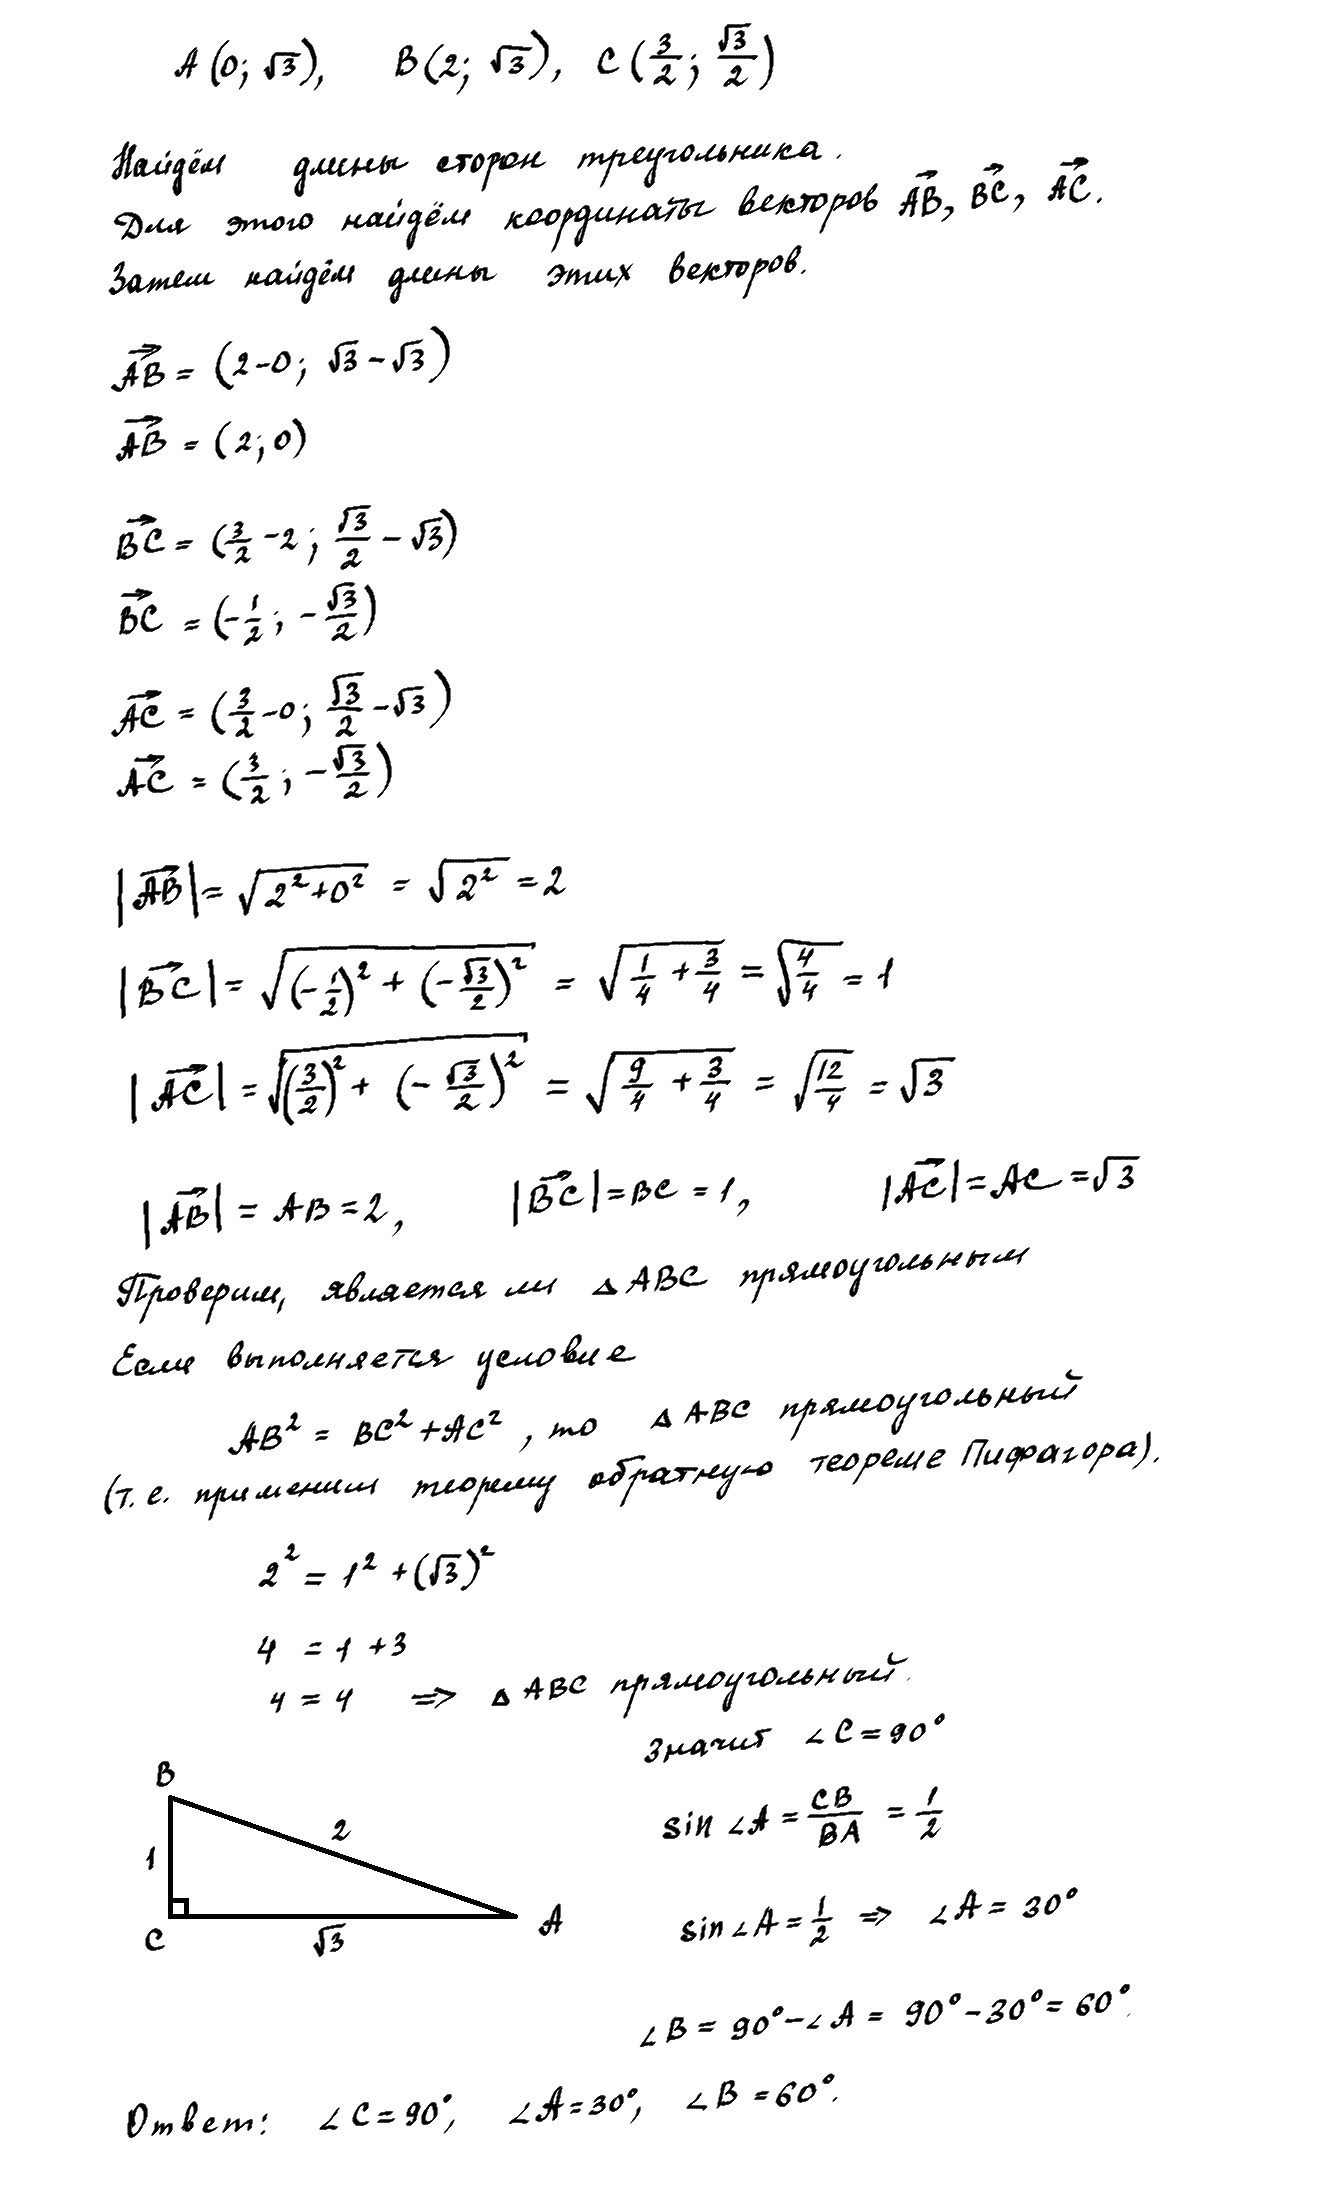 A(0; √3), B(2; √3), C(3/2; √3/2)
Найдём длины сторон треугольника.
Для этого найдём координаты векторов AB⃗, BC⃗, AC⃗.
Затем найдём длины этих векторов.
AB⃗ = (2-0; √3-√3)
AB⃗ = (2; 0)
BC⃗ = (3/2 -2; √3/2 - √3)
BC⃗ = (-1/2; -√3/2)
AC⃗ = (3/2 -0; √3/2 -√3)
AC⃗ = (3/2; -√3/2)
|AB⃗| = √(2²+0²) = √(2²) = 2
|BC⃗| = √((-1/2)² + (-√3/2)²) = √(1/4 + 3/4) = √(4/4) = 1
|AC⃗| = √((3/2)² + (-√3/2)²) = √(9/4 + 3/4) = √(12/4) = √3
|AB⃗| = AB = 2, |BC⃗| = BC = 1, |AC⃗| = AC = √3
Проверим, является ли △ABC прямоугольным
Если выполняется условие
AB² = BC² + AC², то △ABC прямоугольный
(т.е. применим теорему обратную теореме Пифагора).
2² = 1² + (√3)²
4 = 1 + 3
4 = 4 => △ABC прямоугольный.
Значит ∠C = 90°
B
2
1
C
√3
A
sin ∠A = CB/BA = 1/2
sin ∠A = 1/2 => ∠A = 30°
∠B = 90° - ∠A = 90° - 30° = 60°.
Ответ: ∠C = 90°, ∠A = 30°, ∠B = 60°.